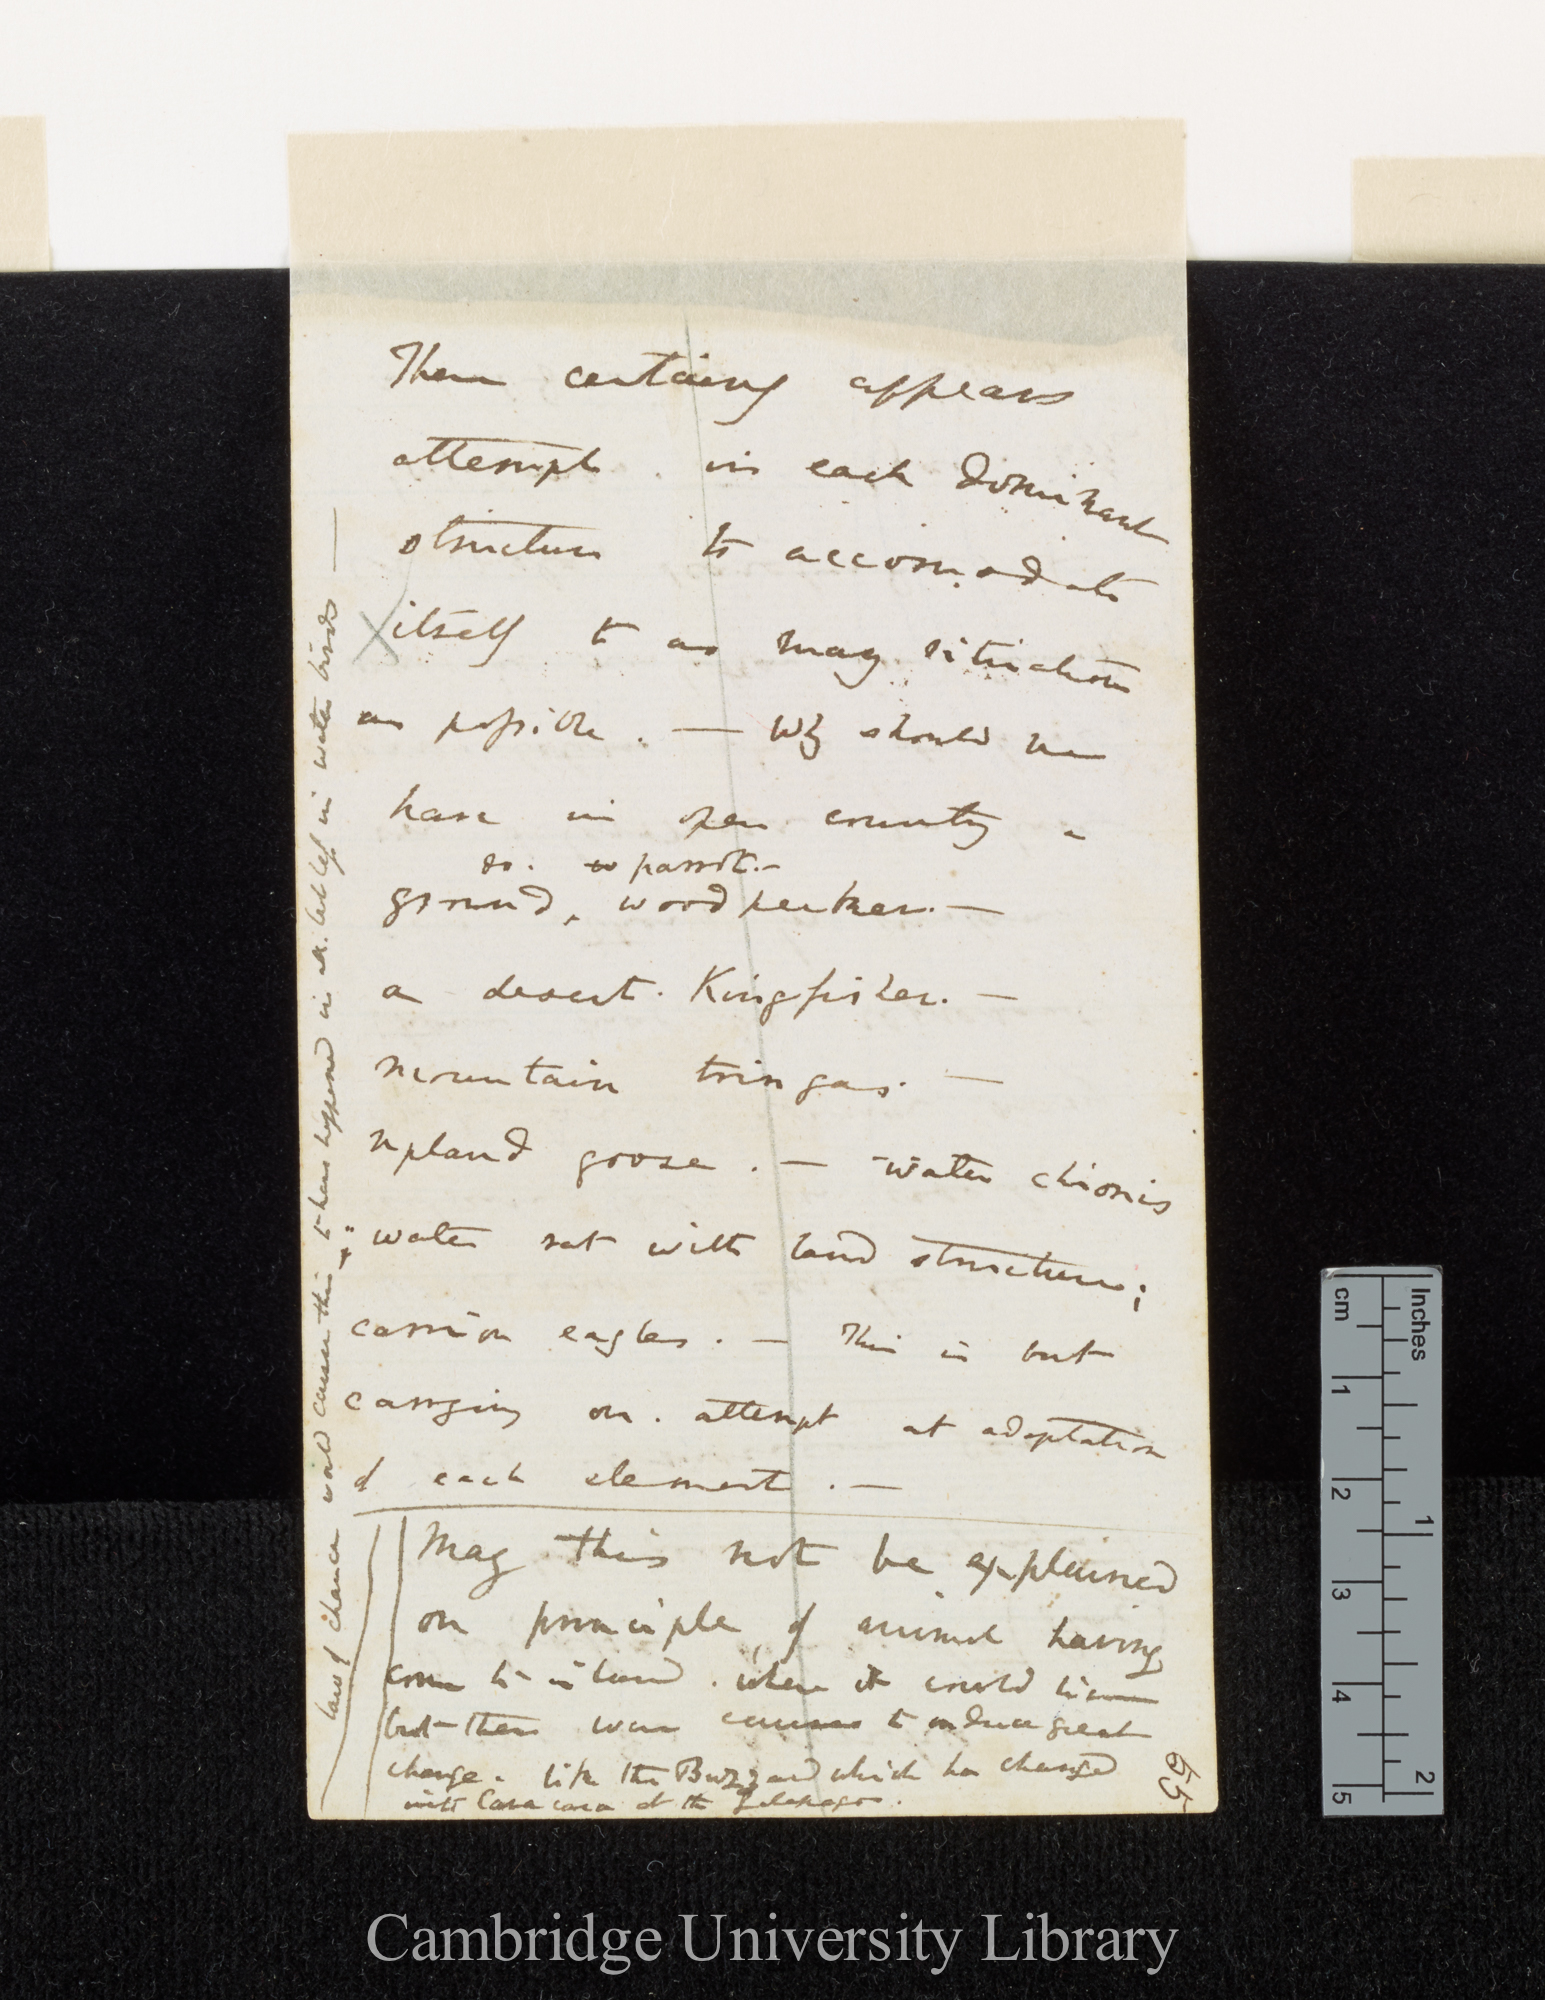 There certainly appears
attempt in each dominant
structure to accomodate
itself to as many situations
as possible. — Why should we
have in open country a
do. parrot. —
ground, woodpecker. —
a desert. Kingfisher. —
mountain tringas. —
upland goose. — water chionis
water rat with land structures;
carrion eagles. — This is but
carrying on attempt at adaptation
of each element. —
May this not be explained
on principle, of animal having
come to island where it could live
but there were causes to induce great
change. like the Buzzard which has changed
into Caracara at the Galapagos.
law of chance would cause this to have happened in all, but less in water birds —
55
cm
Inches
1
2
3
4
5
1
2
Cambridge University Library